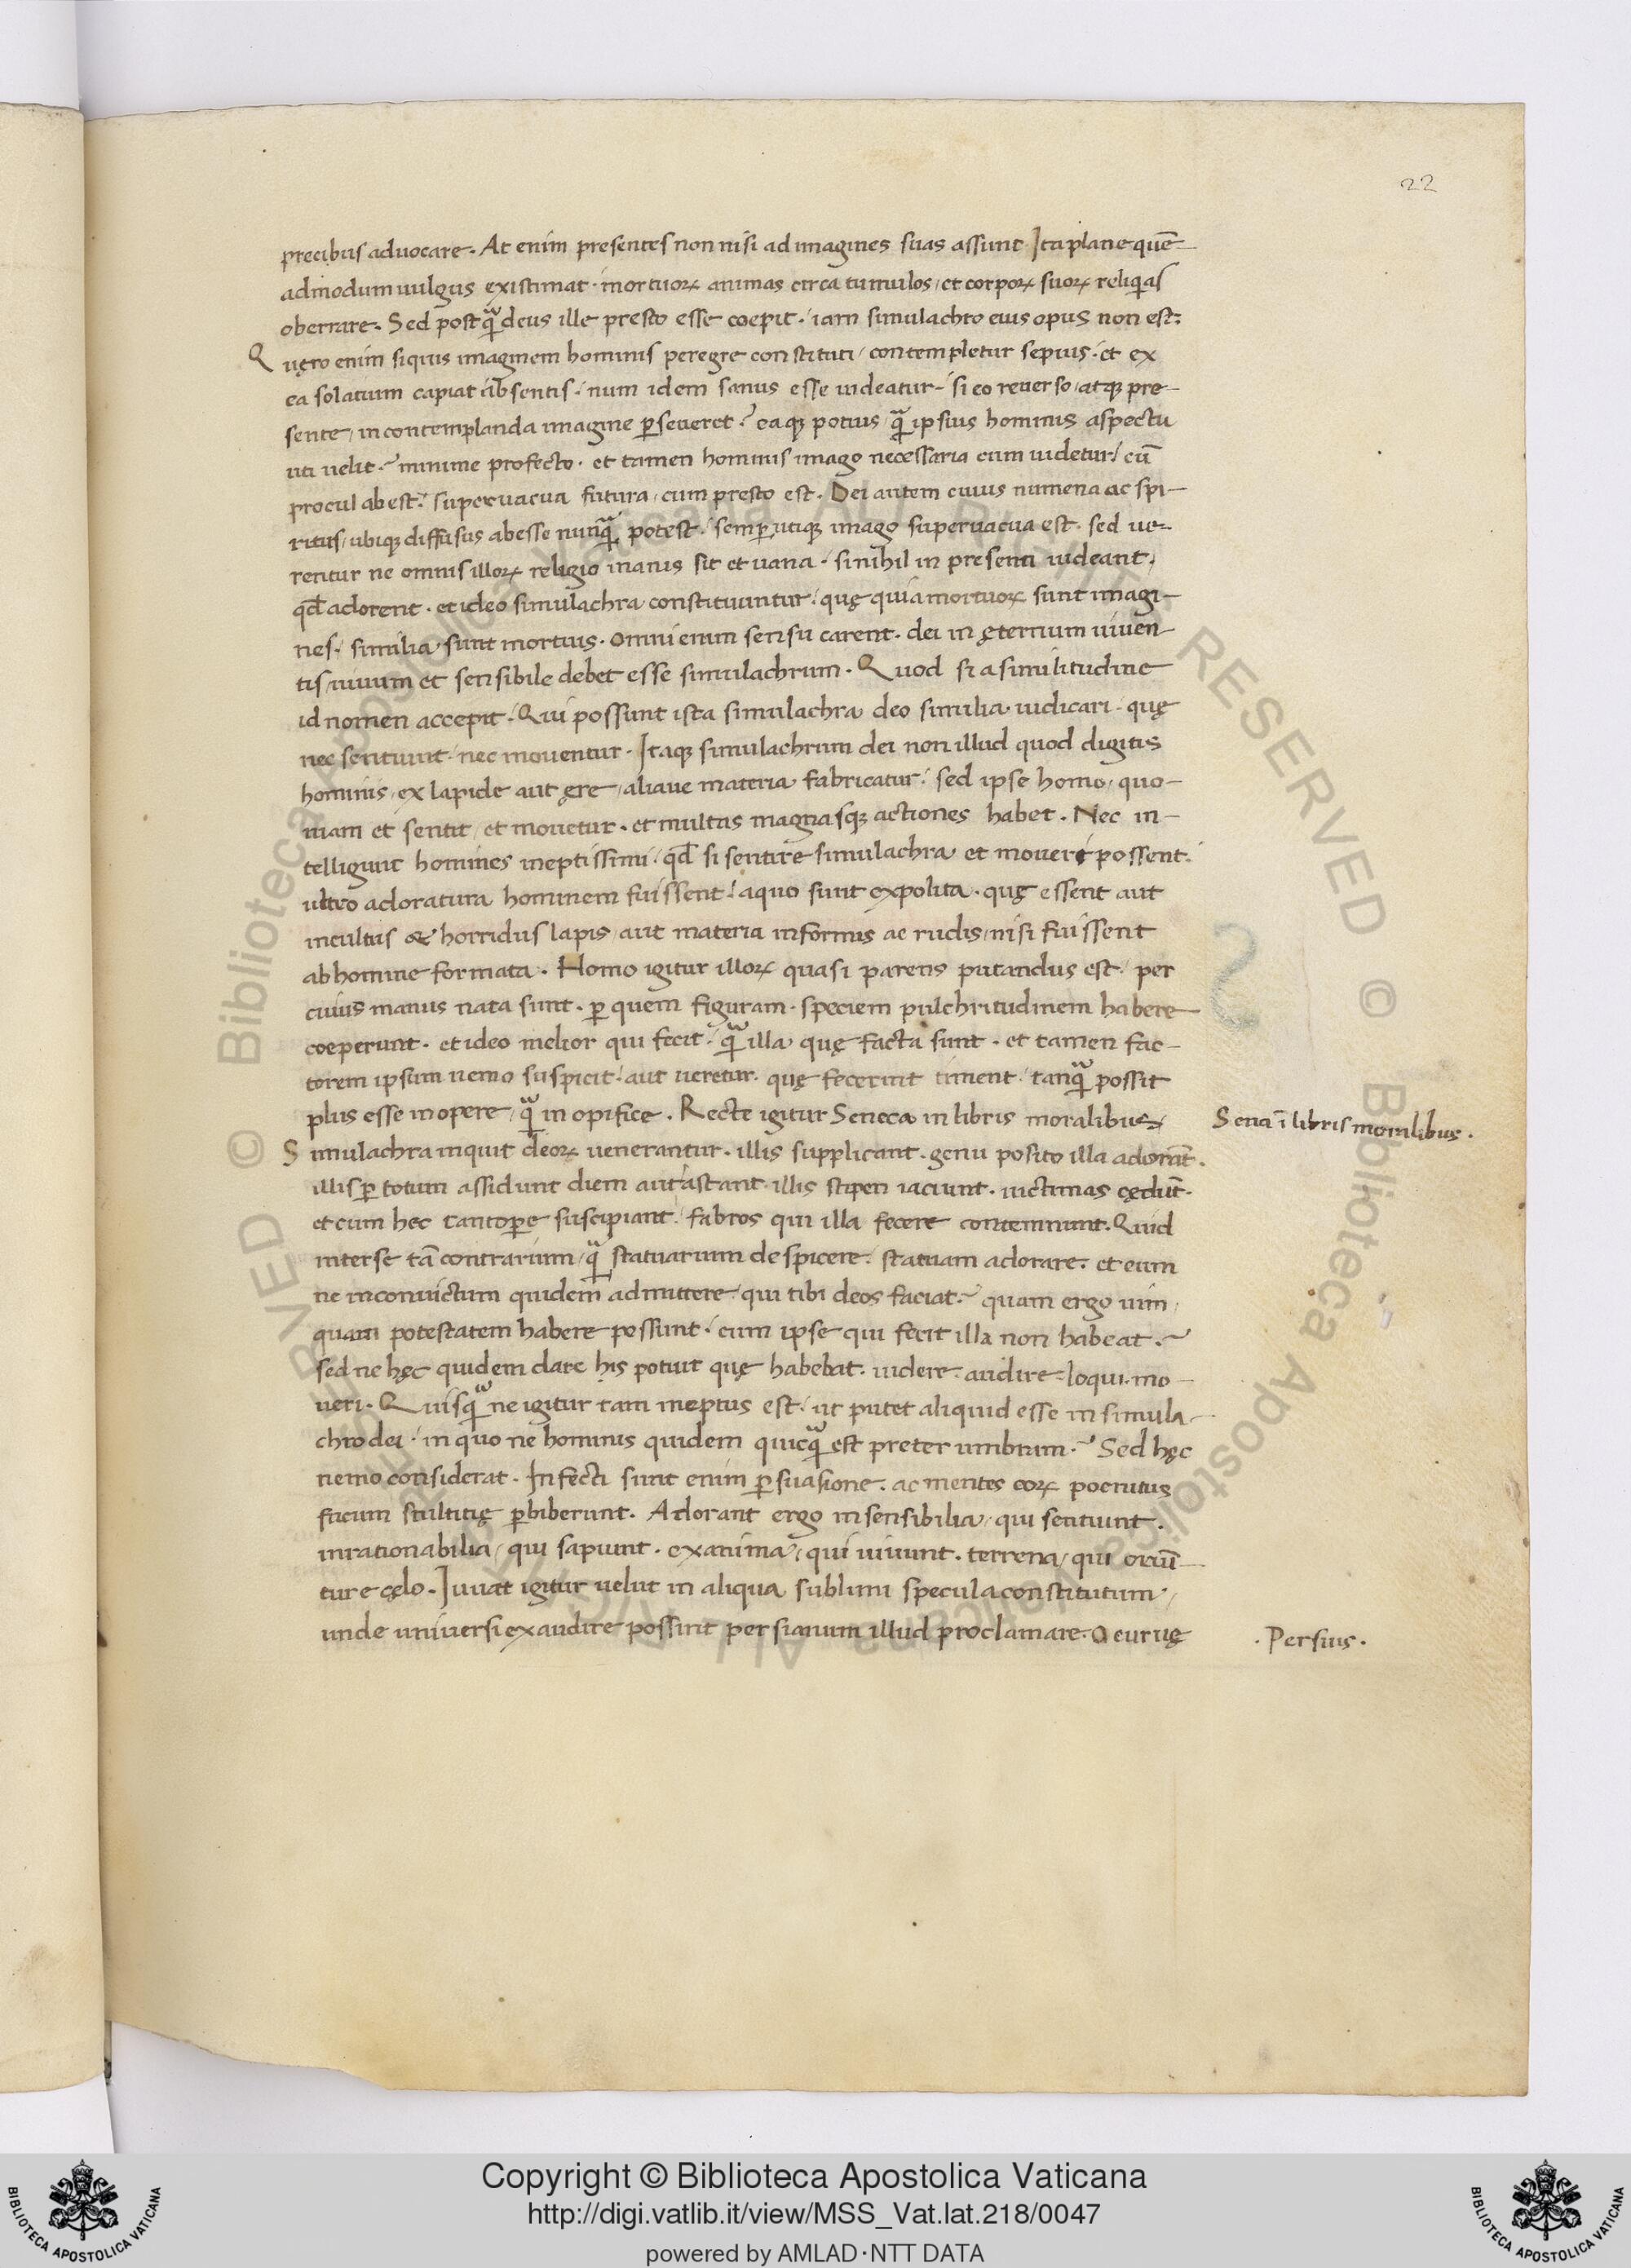 22
precibus aduocare. At enim presentes non nisi ad imagines suas assunt Ita plane quē-
admodum uulgus existimat. mortuoꝝ animas circa tumulos, et corpoꝝ suoꝝ reliq̈as
oberrare. Sed postq̃ deus ille presto esse coepit. iam simulachro eius opus non est:
Q uęro enim siquis imaginem hominis peregre constituti, contempletur sepius. et ex
ea solatium capiat absentis. num idem sanus esse uideatur. si eo reuerso, atqꝫ pre-
sente, in contemplanda imagine ꝑseueret? eaqꝫ potius q̃ ipsius hominis aspectu
uti uelit? minime profecto. et tamen hominis imago necessaria cum uidetur, cū
procul abest. superuacua futura, cum presto est. Dei autem cuius numena ac spi-
ritus, ubiqꝫ diffusus abesse nunq̃ potest. semꝑ utiqꝫ imago superuacua est. sed ue-
rentur ne omnis illoꝝ religio inanis sit et uana. si nihil in presenti uideant,
qđ adorent. et ideo simulachra constituuntur. quę quia mortuoꝝ sunt imagi-
nes. similia sunt mortuis. omni enim sensu carent. dei in ęternum uiuen-
tis, uiuum et sensibile debet esse simulachrum. Quod si a similitudine
id nomen accepit. Qui possunt ista simulachra deo similia iudicari. quę
nec sentiunt, nec mouentur. Itaqꝫ simulachrum dei non illud quod digitis
hominis, ex lapide aut ęre, aliaue materia fabricatur. sed ipse homo, quo-
niam et sentit, et mouetur. et multas magnasqꝫ actiones habet. Nec in-
telligunt homines ineptissimi. qđ si sentire simulachra et moueri possent.
ultro adoratura hominem fuissent. a quo sunt expolita. quę essent aut
incultus & horridus lapis, aut materia informis ac rudis, nisi fuissent
ab homine formata. Homo igitur illoꝝ quasi parens putandus est. per
cuius manus nata sunt. ꝑ quem figuram. speciem pulchritudinem habere
coeperunt. et ideo melior qui fecit. q̃ illa quę facta sunt. et tamen fac-
torem ipsum nemo suspicit. aut ueretur. quę fecerint timent. tanq̃ possit
plus esse in opere, q̃ in opifice. Recte igitur Seneca in libris moralibus
Senā ī libris moralibus.
S imulachra inquit deoꝝ uenerantur. illis supplicant. genu posito illa adorāt.
illis ꝑ totum assidunt diem aut astant. illis stipen iaciunt. uictimas cędūt.
et cum hec tantoꝑe suscipiant. fabros qui illa fecere contemnunt. Quid
inter se tā contrarium, q̃ statuarium despicere. statuam adorare. et eum
ne in conuictum quidem admittere, qui tibi deos faciat? quam ergo uim,
quam potestatem habere possunt. cum ipse qui fecit illa non habeat?
sed ne hęc quidem dare his potuit quę habebat. uidere. audire. loqui. mo-
ueri. Quisq̃ ne igitur tam ineptus est. ut putet aliquid esse in simula-
chro dei. in quo ne hominis quidem quicq̃ est preter umbram? Sed hęc
nemo considerat. Infecti sunt enim ꝑsuasione. ac mentes eoꝝ poenitus
fucum stultitię ꝑbiberunt. Adorant ergo insensibilia, qui sentiunt.
inrationabilia, qui sapiunt. exanima, qui uiuunt. terrena, qui oriū-
tur e cęlo. Iuuat igitur uelut in aliqua sublimi specula constitutum,
unde uniuersi exaudire possint persianum illud proclamare. O curuę
. Persius.
Copyright © Biblioteca Apostolica Vaticana
http://digi.vatlib.it/view/MSS_Vat.lat.218/0047
powered by AMLAD·NTT DATA